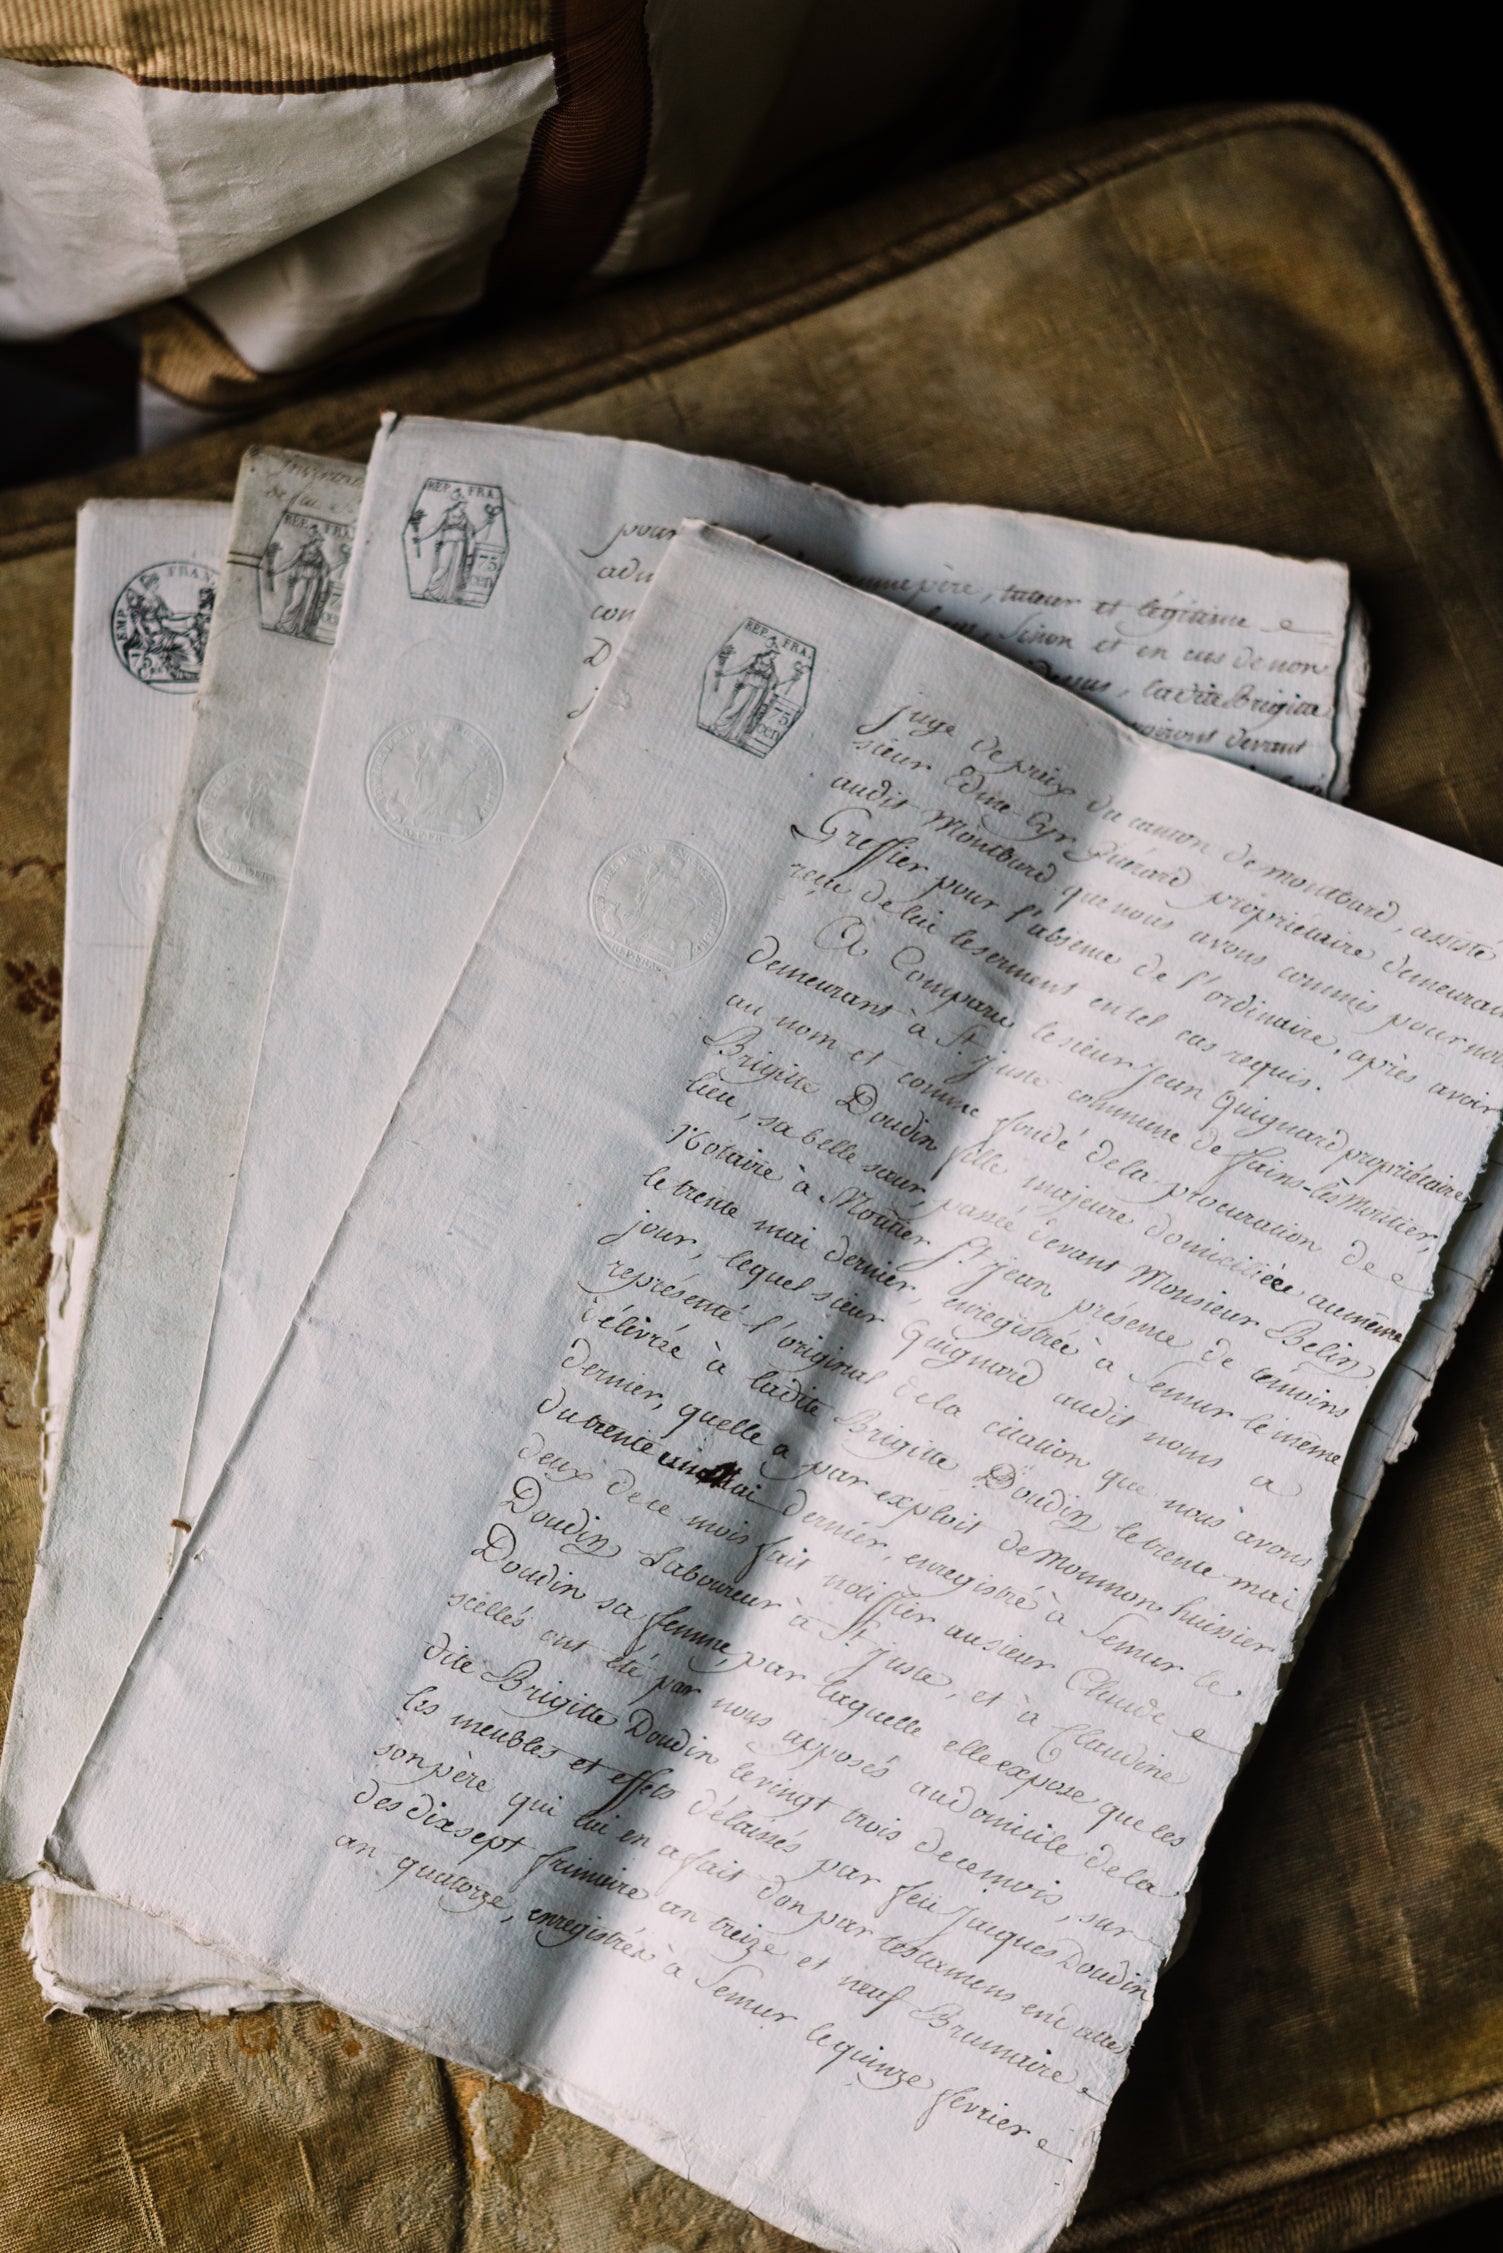 EMP. FRAN
75
REP. FRA.
REP. FRA.
75
CEN
pour
adm
con
D
père, tuteur et légitime
Sinon et en cas de non
dessus, ladite Brigitte
devant
REP. FRA.
75
CEN
juge de paix du canton de montbard, assisté
sieur Edme Cyr Guérard propriétaire demeurant
audit Montbard que nous avons commis pour notre
Greffier pour l'absence de l'ordinaire, après avoir
reçu de lui le serment en tel cas requis.
A Comparu le sieur Jean Quignard propriétaire
demeurant à St. juste commune de fains-lès Moutier,
au nom et comme fondé de la procuration de
Brigitte Doudin fille majeure domiciliée au même
lieu, sa belle sœur, passé devant Monsieur Belin
Notaire à Moutier St. jean présence de temoins
le trente mai dernier, enregistrée à Semur le même
jour, lequel sieur Quignard audit nom nous a
représenté l'original de la citation que nous avons
délivrée à ladite Brigitte Doudin le trente mai
dernier, quelle a par exploit de Monmon huissier
du trente un Mai dernier, enregistré à Semur le
deux de ce mois fait notifier au sieur Claude
Doudin Laboureur à St. juste, et à Claudine
Doudin sa femme, par laquelle elle expose que les
scellés ont été par nous apposés au domicile de la
dite Brigitte Doudin le vingt trois de ce mois, sur
les meubles et effets délaissés par feü Jacques Doudin
son père qui lui en a fait don par testamens en dattes
des dixsept frimaire an treize et neuf Brumaire
an quatorze, enregistrés à Semur le quinze février